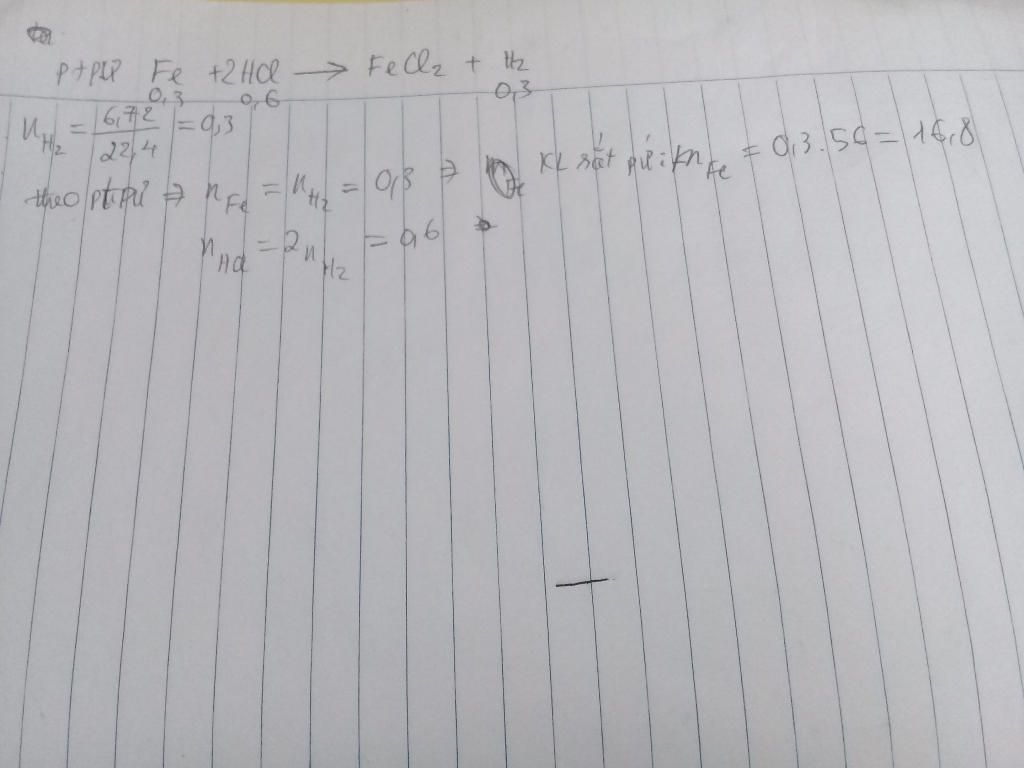 Fe + 2HCl → FeCl₂ + H₂
0,3 0,6 0,3
n_H₂ = 6,72/22,4 = 0,3
theo ptpư ⇒ n_Fe = n_H₂ = 0,3 ⇒ KL sắt pư: m_Fe = 0,3.56 = 16,8
n_HCl = 2n_H₂ = 0,6